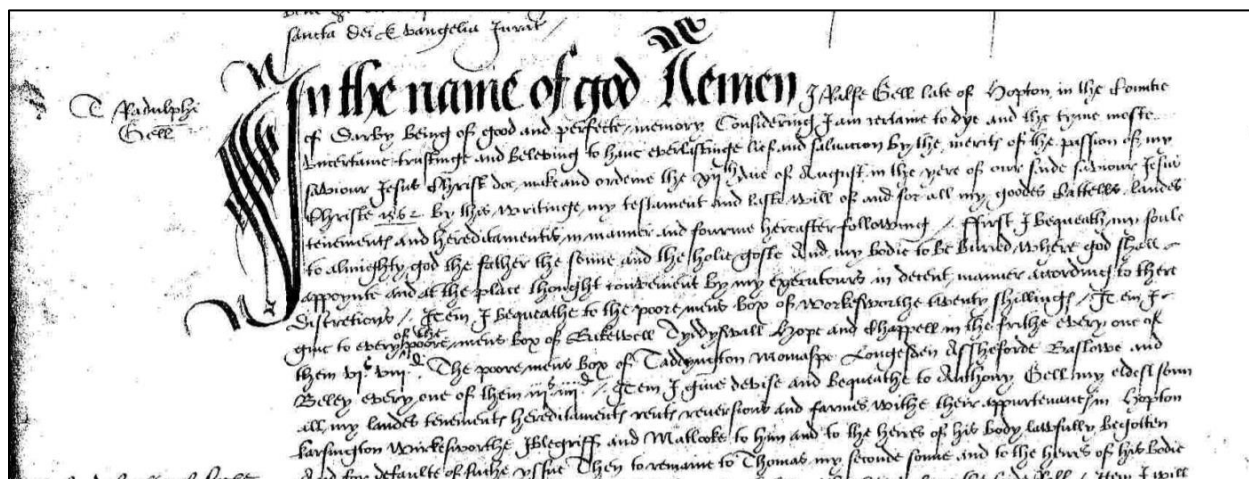 sancta dei Evangelia Jurat
T Radulphe
Gell
In the name of god Aemen I Ralfe Gell late of Hopton in the Countie
of Darby being of good and perfecte memory Considering I am certaine to dye and the tyme moste
uncertaine trustinge and beleving to have everlastinge lief and salvacion by the merits of the passion of my
saviour Jesus Christ doe make and ordeine the daie of August in the yere of our saide saviour Jesus
Christe by this writinge my testament and laste will of and for all my goodes Cattells landes
tenements and hereditaments in manner and fourme hereafter following / ffirst I bequeath my soule
to almighty god the father the sonne and the holie goste And my bodie to be buried where god shall
appoynte and at the place thought convenient by my executours in decent manner according to there
discretions / Item I bequeathe to the poore mens box of workesworthe twenty shillings / Item I
give to every of the poore mens box of Bakewell Tyddyswall Hope and Chappell in the frithe every one of
them vis viiid. The poore mens box of Taddyngton Longesden Assheforde Baslowe and
Beley every one of them iiis iiiid / Item I give devise and bequeathe to Anthony Gell my eldest sonn
all my landes tenements hereditaments rents reversions and farmes withe their appurtenances in Hopton
karsington wirkesworthe Iblegriff and Matlocke to him and to the heires of his body lawfully begotten
And for defaulte of suche yssue Then to remaine to Thomas my seconde sonne and to the heires of his bodie
Item I will